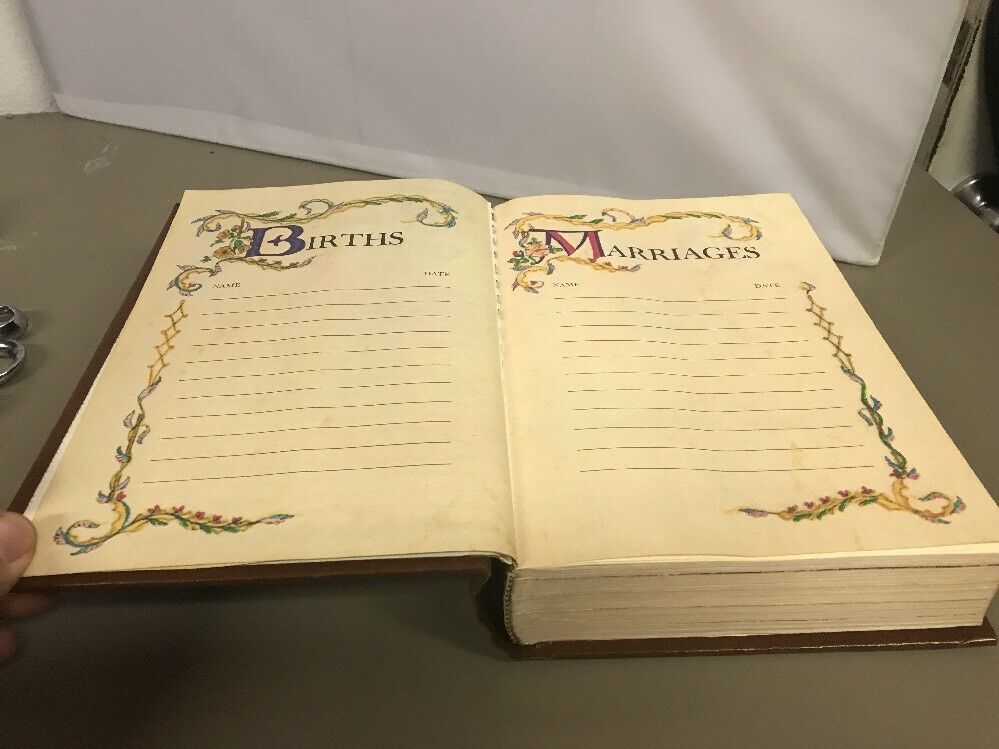 BIRTHS
NAME DATE
MARRIAGES
NAME DATE